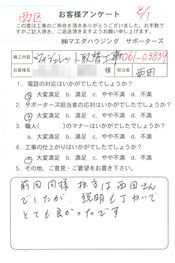 西区
8/1
お客様アンケート
この度は工事のご用命を頂きありがとうございました。お手数で
すがご記入頂き、ご返送頂きますようお願い申し上げます。
㈱マエダハウジング サポーターズ
施工内容 取替工事 061-03839
お客様名 様 担当者 西田
1．電話の対応はいかがでしたでしょうか？
a．大変満足 b．満足 c．やや不満 d．不満
2．サポーターズ担当者の対応はいかがでしたでしょうか？
a．大変満足 b．満足 c．やや不満 d．不満
3．職人（ ）のマナーはいかがでしたでしょうか？
a．大変満足 b．満足 c．やや不満 d．不満
4．工事の仕上がりはいかがでしたでしょうか？
a．大変満足 b．満足 c．やや不満 d．不満
5．その他、ご意見・ご要望をお書き下さい。
前回同様 担当は西田さん
でしたが 説明も丁ねいで
とても良かったです